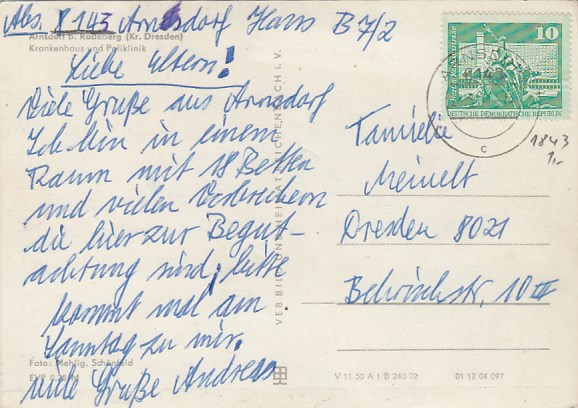 Abs. 8143 Arnsdorf Haus B 7/2
Arnsdorf b. Radeberg (Kr. Dresden)
Krankenhaus und Poliklinik
Liebe Eltern!
Viele Grüße aus Arnsdorf
Ich bin in einem
Raum mit 18 Betten
und vielen Verbrechern
die hier zur Begut-
achtung sind, bitte
kommt mal am
Sonntag zu mir.
viele Grüße Andreas
Foto: Mehlig, Schönfeld
EVP
VEB BILD UND HEIMAT REICHENBACH I. V.
10
DEUTSCHE DEMOKRATISCHE REPUBLIK
8143
c
1843
1,-
Familie
Meinelt
Dresden 8021
10 III
V 11 50 A 1 B 240/72 01 12 04 097